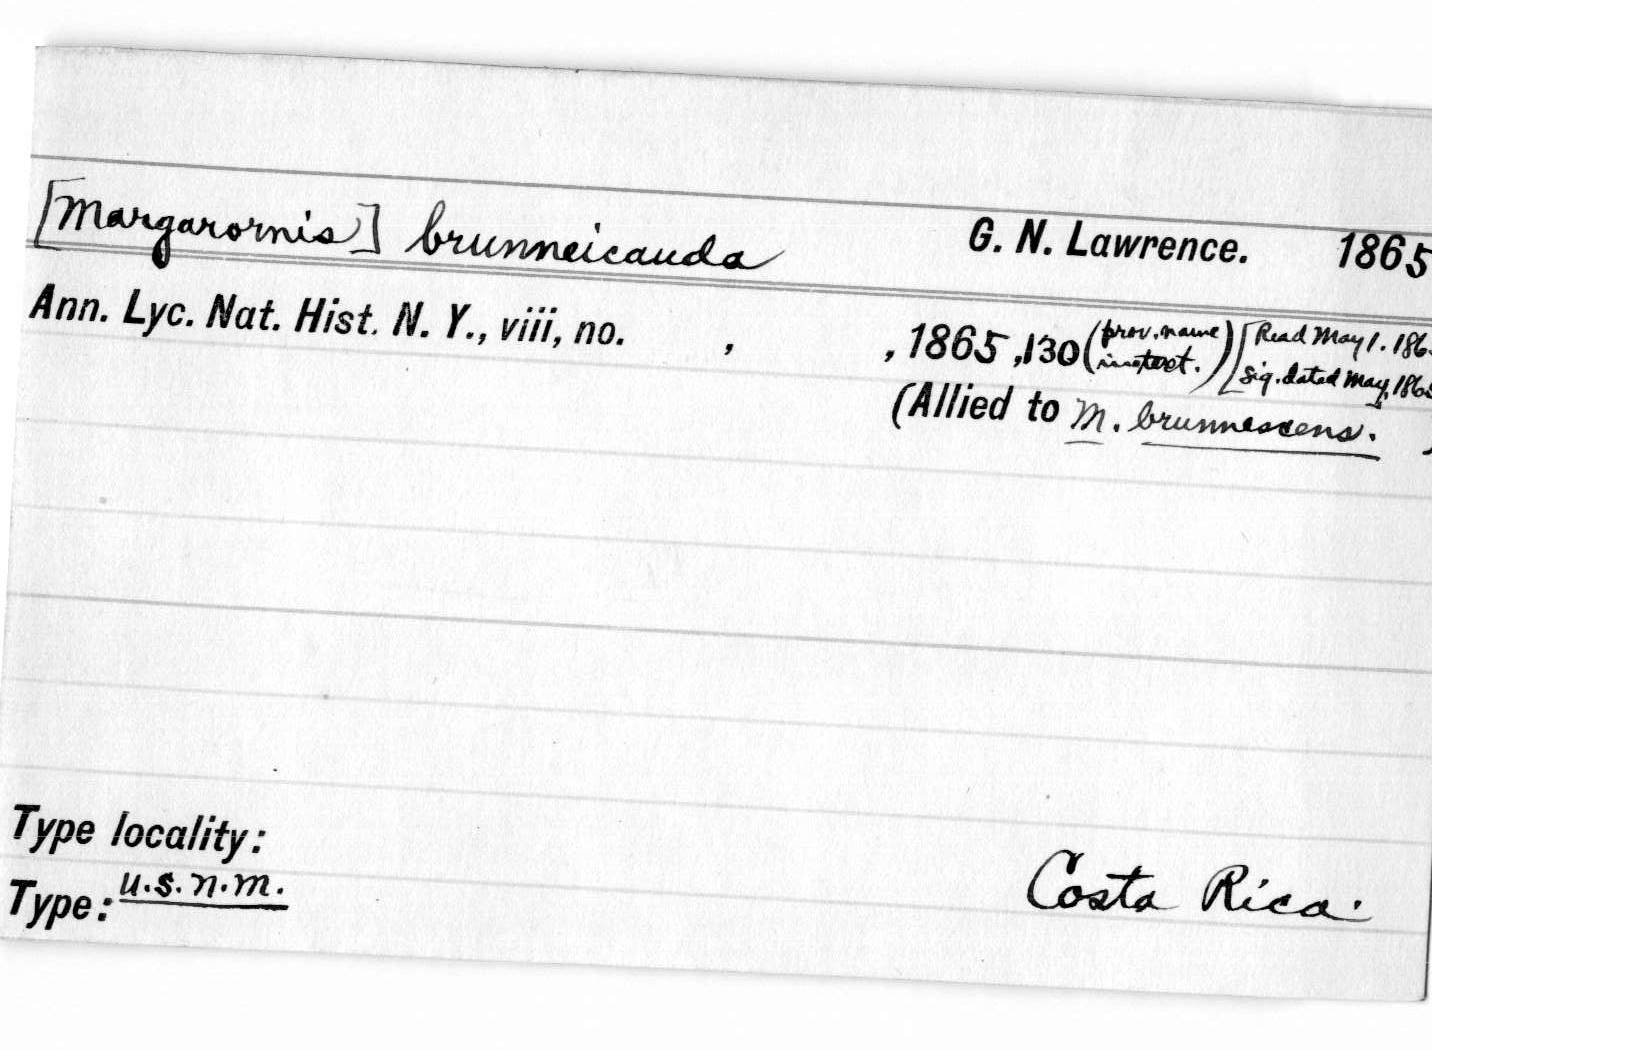 [Margarornis] brunneicauda G. N. Lawrence. 1865
Ann. Lyc. Nat. Hist. N. Y., viii, no. , , 1865, 130 (prov. name in text.) [Read May 1. 186
sig. dated May, 186
(Allied to M. brunnescens. )
Type locality:
Costa Rica.
Type: U.S.N.M.